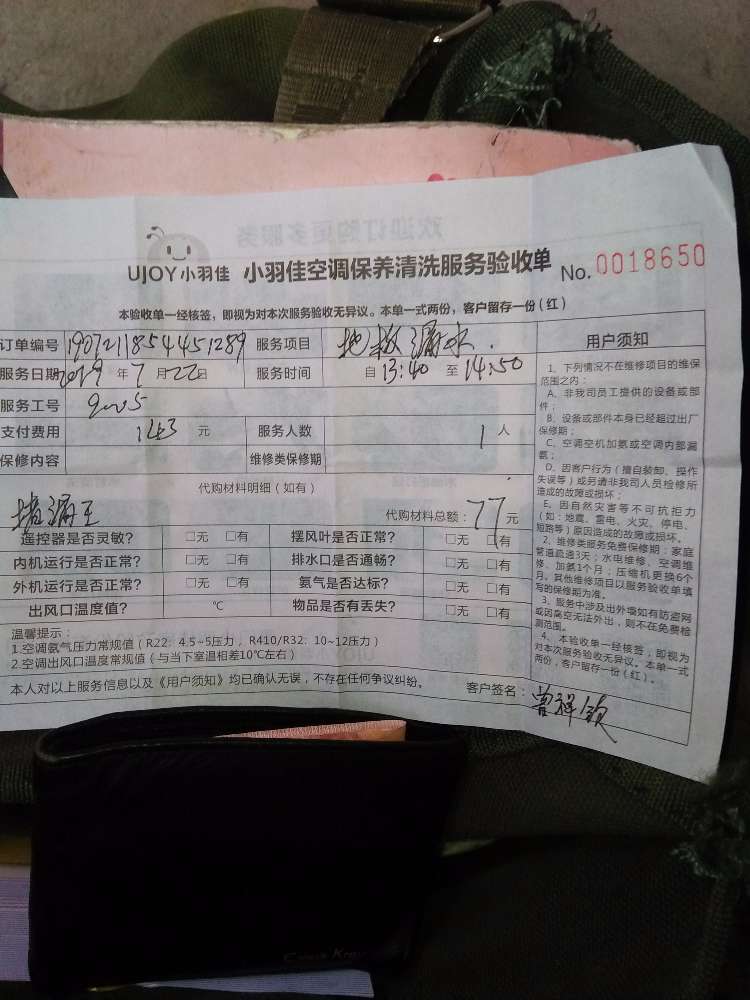 欢迎订购更多服务
UJOY小羽佳 小羽佳空调保养清洗服务验收单 No.0018650
本验收单一经核签，即视为对本次服务验收无异议。本单一式两份，客户留存一份（红）
订单编号 1907211854451289 服务项目 地板漏水.
服务日期 2019 年 7 月 22 日 服务时间 自 13:40 至 14:50
服务工号
支付费用 元 服务人数 1 人
保修内容 维修类保修期
代购材料明细（如有）
堵漏王 代购材料总额：77 元
遥控器是否灵敏? □无 □有 摆风叶是否正常? □无 □有
内机运行是否正常? □无 □有 排水口是否通畅? □无 □有
外机运行是否正常? □无 □有 氨气是否达标? □无 □有
出风口温度值? ℃ 物品是否有丢失? □无 □有
温馨提示：
1.空调氨气压力常规值（R22：4.5~5压力，R410/R32：10~12压力）
2.空调出风口温度常规值（与当下室温相差10℃左右）
本人对以上服务信息以及《用户须知》均已确认无误，不存在任何争议纠纷。
客户签名：曾祥钦
用户须知
1、下列情况不在维修项目的维保
范围之内：
A、非我司员工提供的设备或部
件；
B、设备或部件本身已经超过出厂
保修期；
C、空调空机加氨或空调内部漏
氨；
D、因客户行为（擅自装卸、操作
失误等）或另请非我司人员检修所
造成的故障或损坏；
E、因自然灾害等不可抗拒力
（如：地震、雷电、火灾、停电、
短路等）原因造成的故障或损坏。
2、维修类服务免费保修期：家庭
管道疏通3天；水电维修、空调维
修、加氨1个月；压缩机更换6个
月。其他维修项目以服务验收单填
写的保修期为准。
3、服务中涉及出外墙如有防盗网
或因高空无法外出，则不在免费检
测范围。
4、本验收单一经核签，即视为
对本次服务验收无异议。本单一式
两份，客户留存一份（红）。